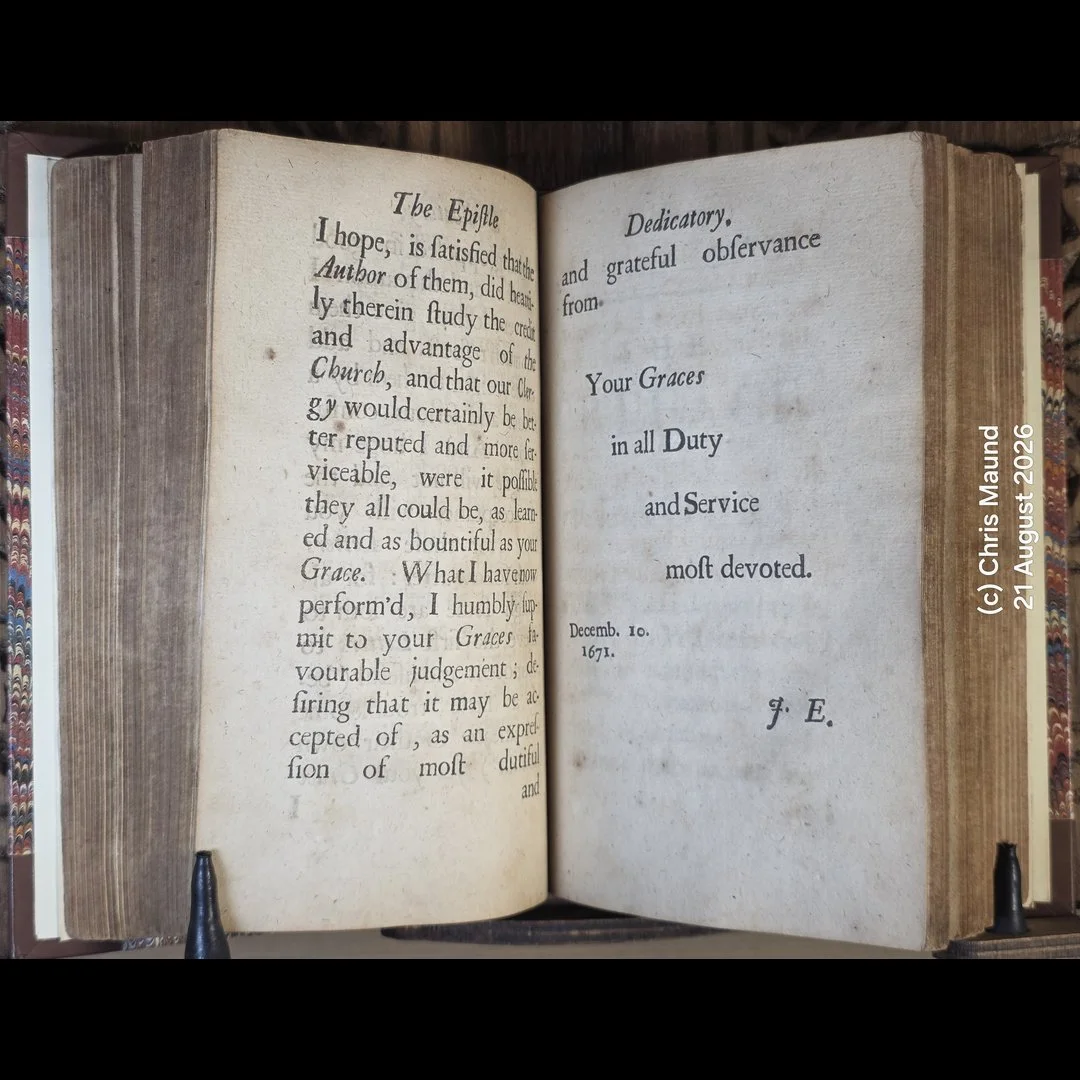 The Epiſtle
I hope, is ſatisfied that the
Author of them, did heasti-
ly therein ſtudy the credit
and advantage of the
Church, and that our Cler-
gy would certainly be bet-
ter reputed and more ſer-
viceable, were it poſſible
they all could be, as learn-
ed and as bountiful as your
Grace. What I have now
perform'd, I humbly ſup-
mit to your Graces fa-
vourable judgement; de-
ſiring that it may be ac-
cepted of, as an expreſ-
ſion of moſt dutiful
and
Dedicatory.
and grateful obſervance
from
Your Graces
in all Duty
and Service
moſt devoted.
Decemb. 10.
1671.
J. E.
(c) Chris Maund
21 August 2026